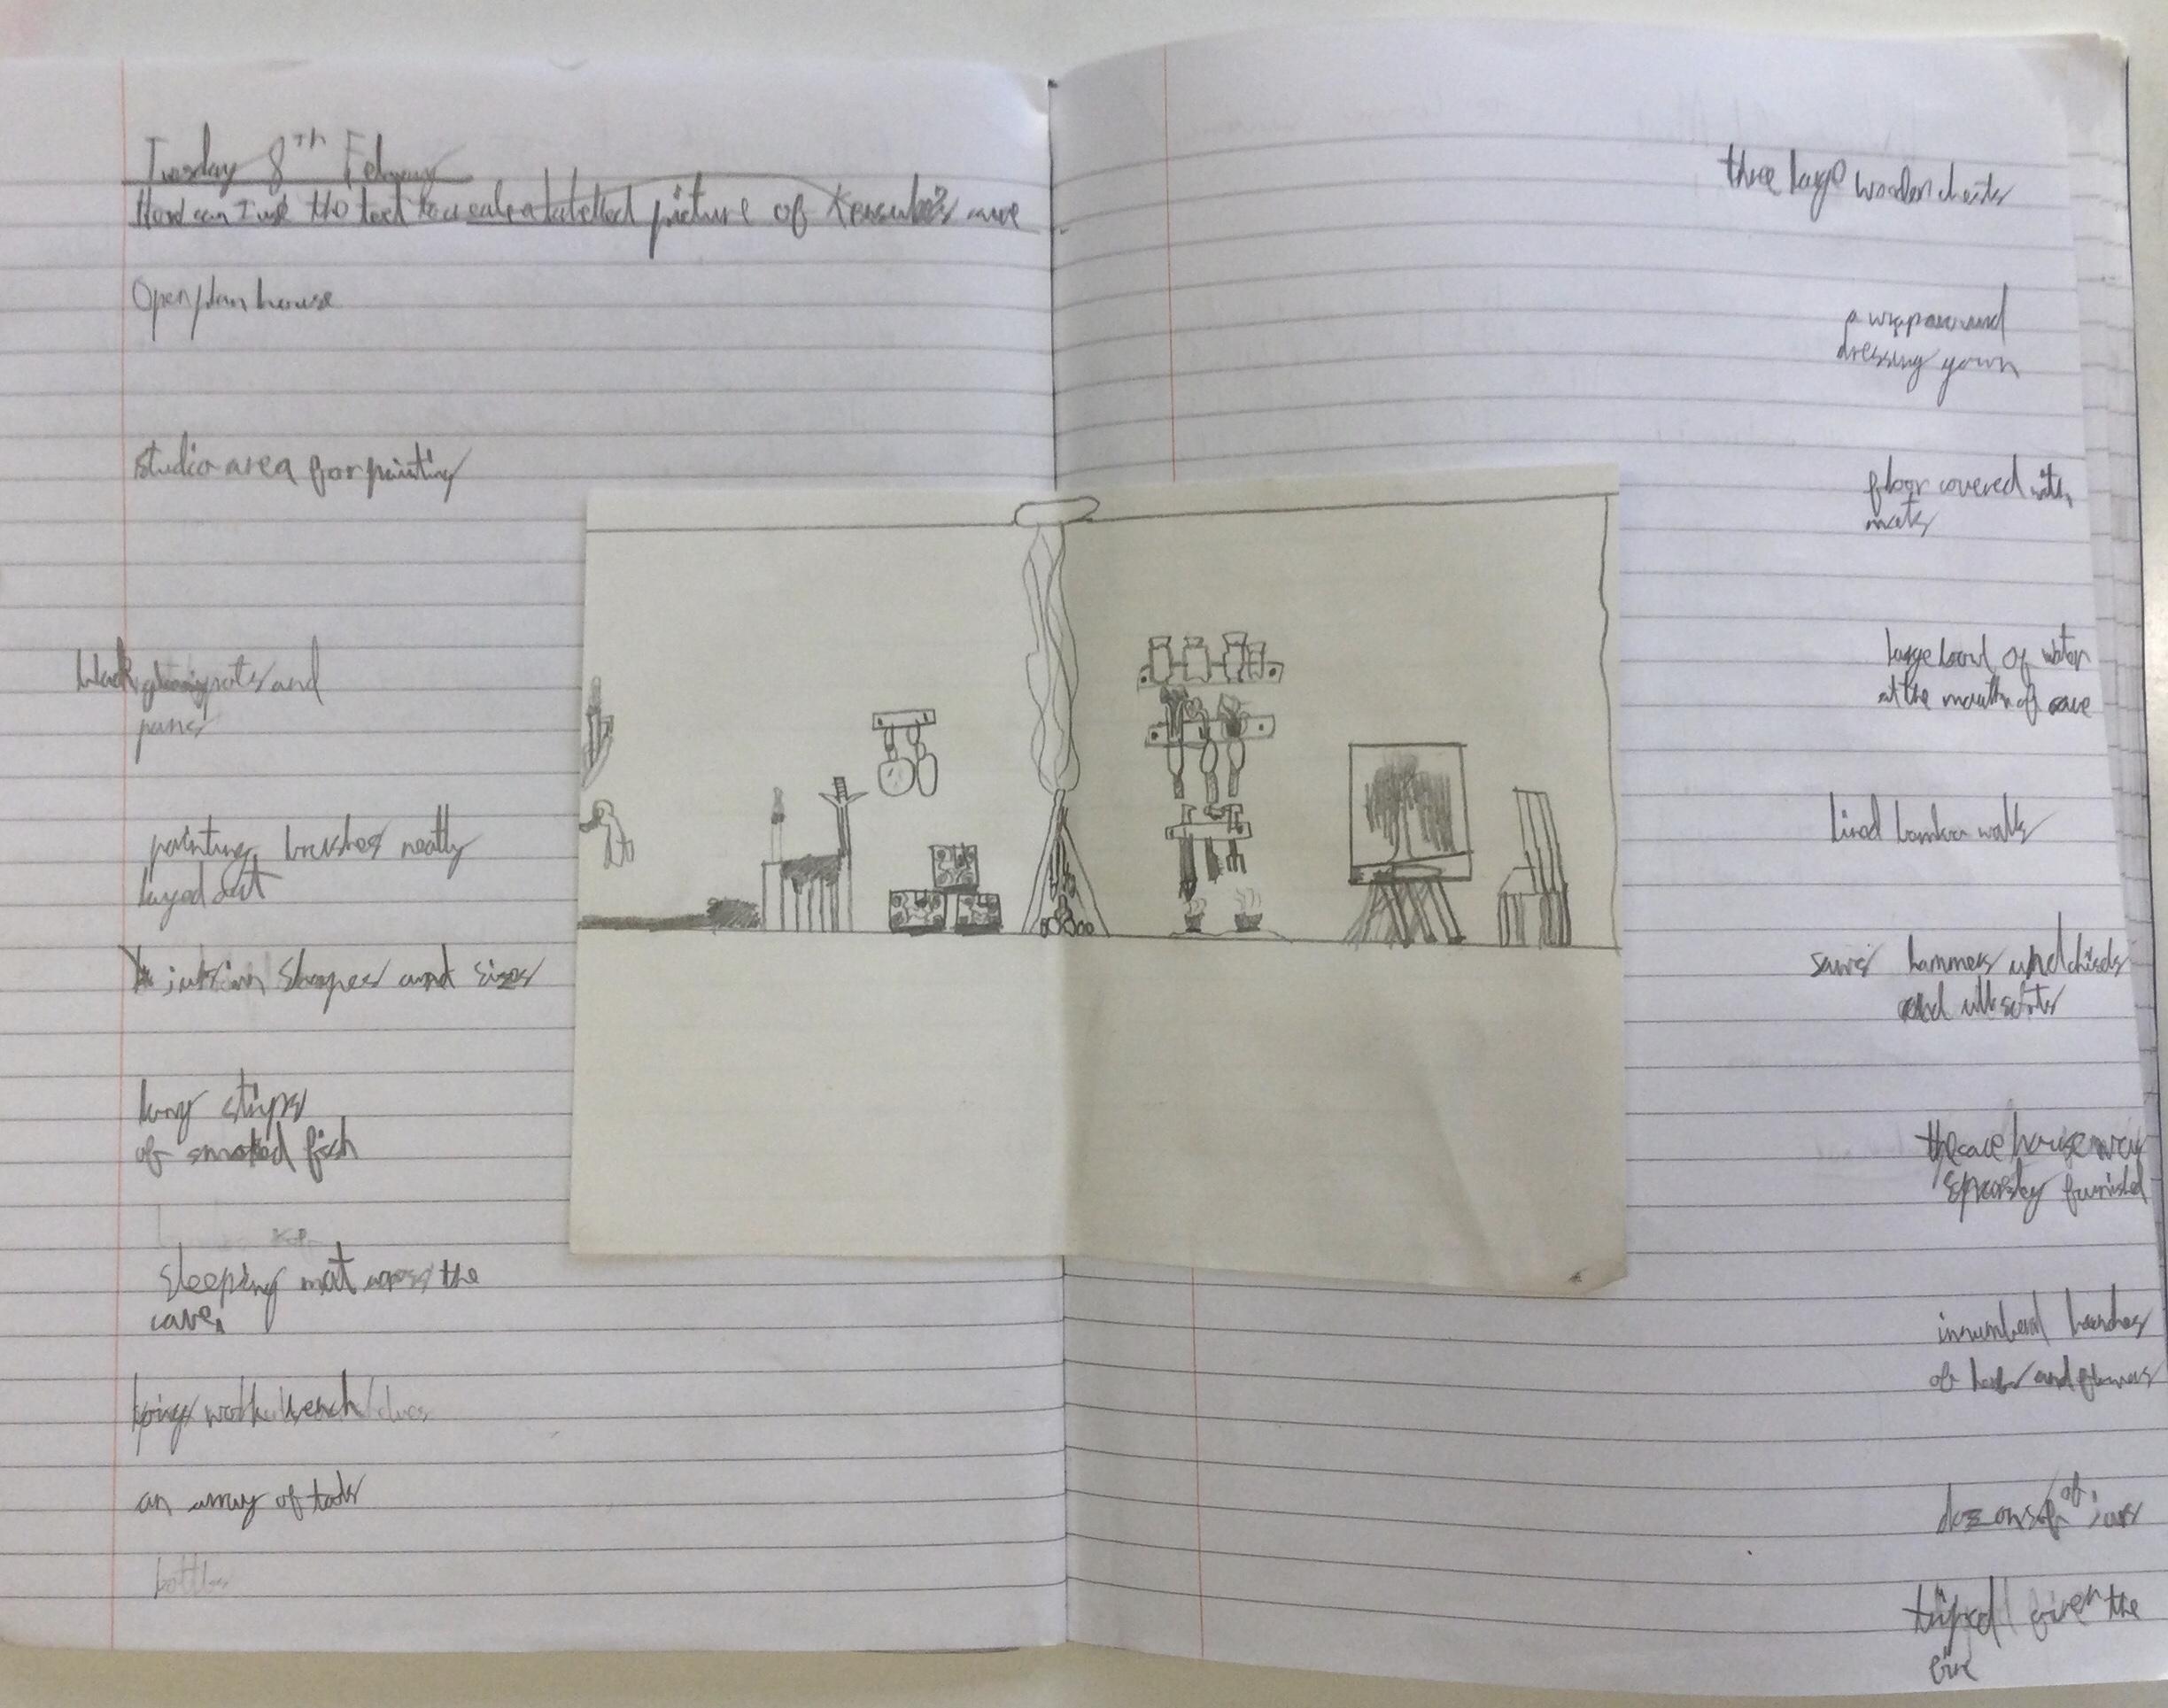 Tuesday 8th February
How can I use the text to create a labelled picture of Kensuke's cave
Open plan house
studio area for painting
black gleaming pots and
pans
painting brushes neatly
layed out
shapes and sizes
long strips
of smoked fish
sleeping mat across the
cave
work bench
an array of tools
bottles
three large wooden chests
a wrap around
dressing gown
floor covered with
mats
large bowl of water
at the mouth of cave
lined bamboo walls
saws hammers and chisels
and all sorts
the cave house was
furnished
of herbs and flowers
dozens of of jars
over the
fire